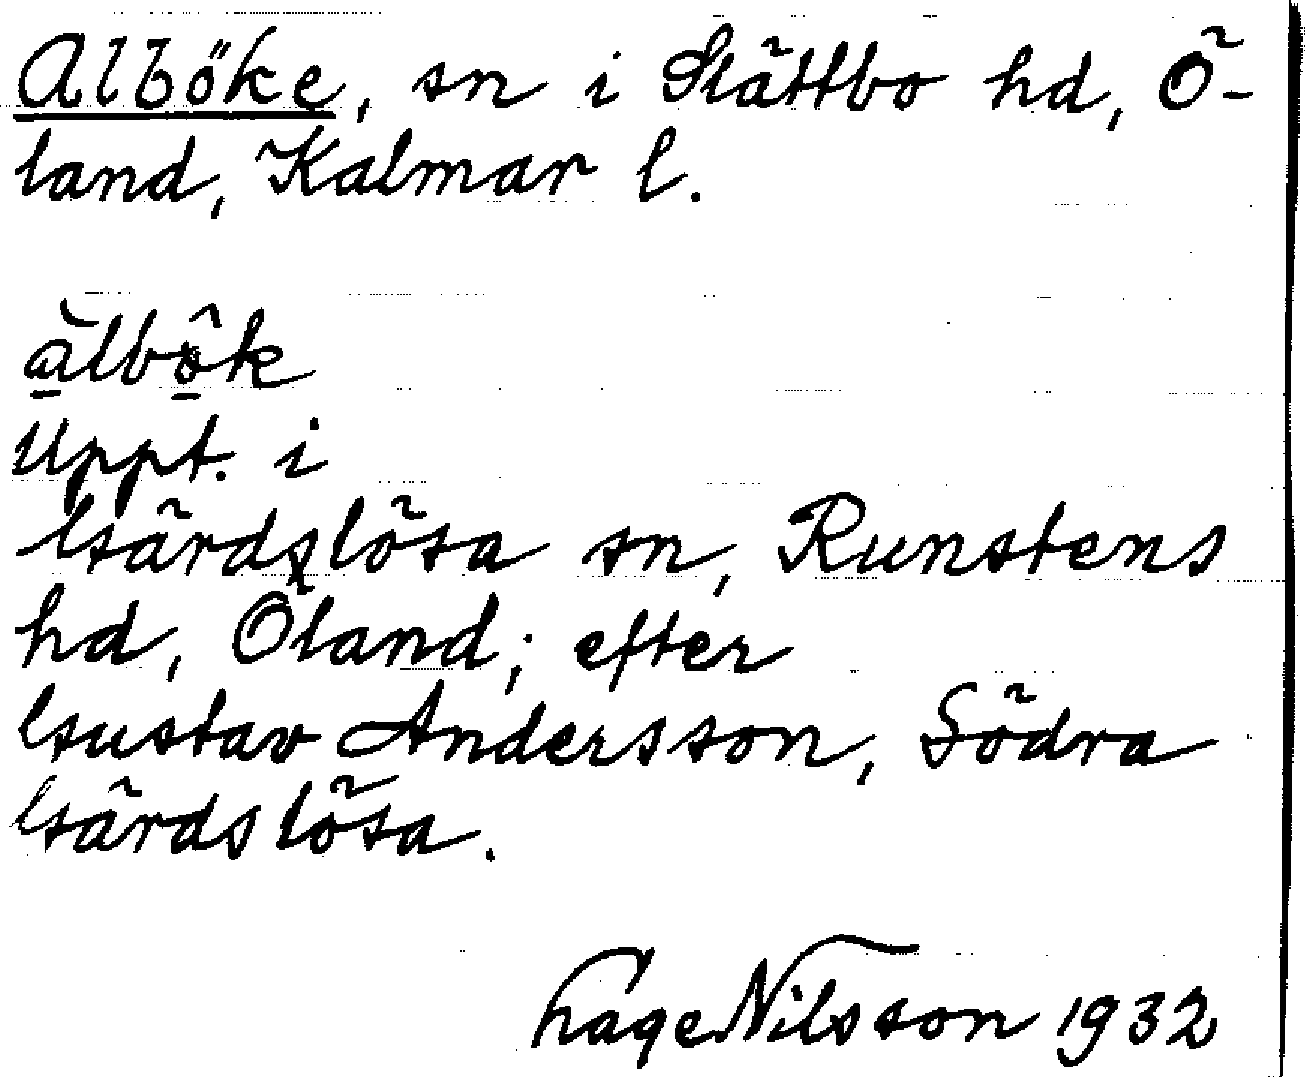 Alböke, sn i Slättbo hd, Ö-
land, Kalmar l.
a̠̍lbö̠̂k
Uppt. i
Gärdslösa sn, Runstens
hd, Öland; efter
Gustav Andersson, Södra
Gärdslösa.
Hage Nilsson 1932